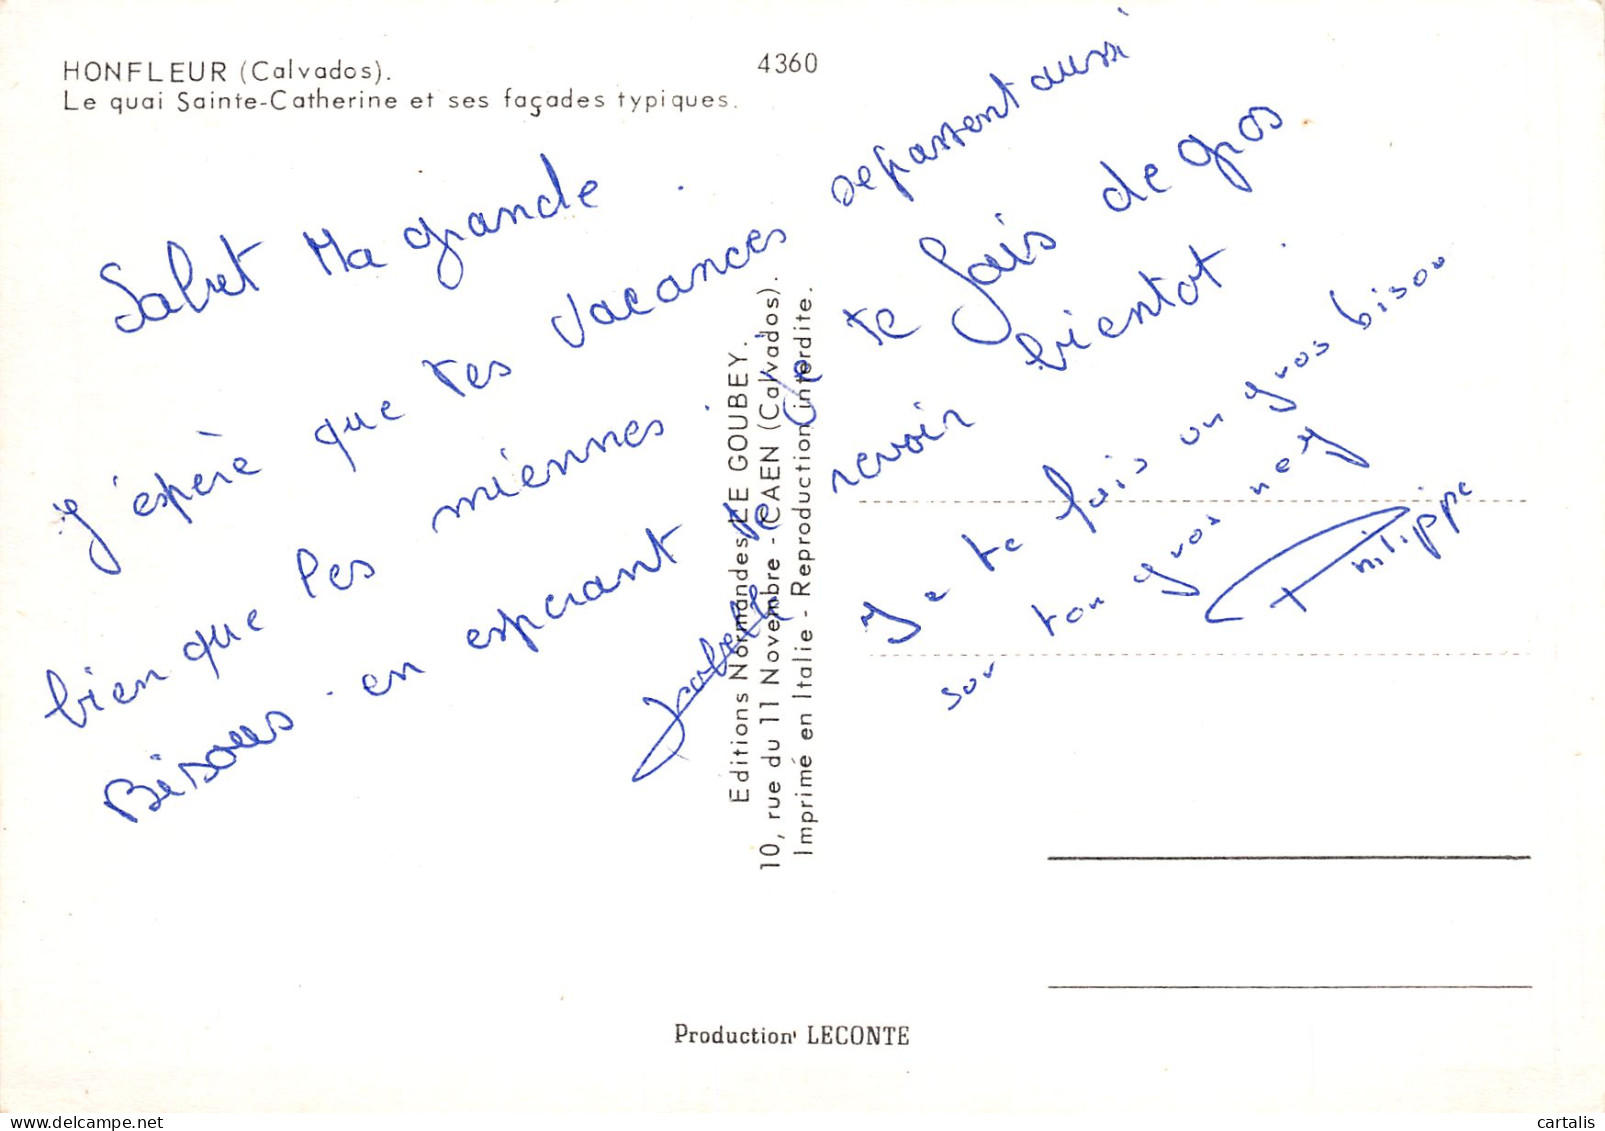 HONFLEUR (Calvados).
Le quai Sainte-Catherine et ses façades typiques.
4360
Salut Ma grande.
J'espère que tes vacances se passent aussi
bien que les miennes. Je te fais de gros
Bisous. en esperant te revoir bientot.
Isabelle
Je te fais un gros bisou
sur ton gros nez
Philippe
Editions Normandes LE GOUBEY.
10, rue du 11 Novembre - CAEN (Calvados).
Imprimé en Italie - Reproduction interdite.
Production LECONTE
cartalis